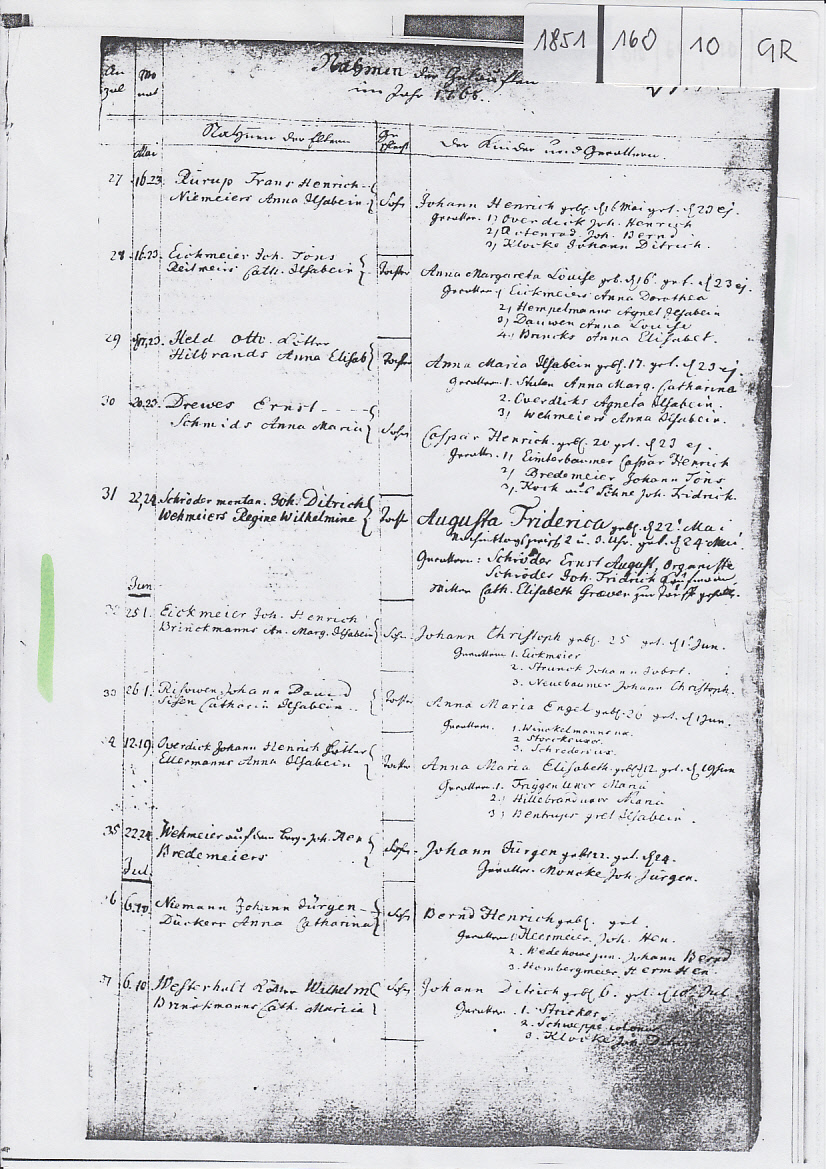 1851 160 10 GR
Nahmen der Getauften
im Jahr 1766.
An Mo
zal nat
Nahmen der Eltern
Der Kinder und Gevattern.
Mai
27 16.23 Rürup Frans Henrich
Niemeiers Anna Ilsabein Sohn
Johann Henrich geb. d 16 Mai get. d 23 ej.
Gevatter 1) Overdick Joh. Henrich
2) Joh. Bernd
3) Klocke Johann Ditrich.
28 16.23. Eickmeier Joh. Töns
Cath. Ilsabein Tochter
Anna Margareta Louise geb. d 16 get. d 23 ej.
Gevatter 1) Eickmeiers Anna Dorothea
2) Hempelmanns Agnes Ilsabein
3) Dauwen Anna Louise
4. Brincks Anna Elisabet.
29 17.23. Held Otto Kötter
Hilbrands Anna Elisab Tochter
Anna Maria Ilsabein geb. 17. get. d 23 ej.
Gevatter 1. Anna Marg. Catharina
2. Overdicks Agneta Ilsabein.
3) Wehmeiers Anna Ilsabein.
30 20.23. Drewes Ernst
Schmids Anna Maria Sohn
Caspar Henrich. geb. 20 get. d 23 ej.
Gevatter 1) Eimterbäumer Caspar Henrich
2) Bredemeier Johann Töns
3) Kork Söhne Joh. Fridrich.
31 22,24. Schröder montan. Joh. Ditrich
Wehmeiers Regine Wilhelmine Tochter
Augusta Friderica geb. d 22 Mai
Nachmittags 2 u. 3. Uhr. get. d 24 Mai
Gevattern: Schröder Ernst August, Organiste
Schröder Joh. Fridrich
Cath. Elisabeth Graven
Jun
25 1. Eickmeier Joh. Henrich
Brinckmanns An. Marg. Ilsabein Sohn
Johann Christoph geb. 25 get. d 1 Jun.
Gevattern 1. Eickmeier
2. Strunck Johann Jobst.
3. Neuebäumer Johann Christoph.
33 26 1. Johann David
Catharin Ilsabein Tochter
Anna Maria Engel geb. 26 get. d 1 Jun.
Gevattern. 1. Winckelmanns
2
3. Schröders
4 12.19. Overdick Johann Henrich Kötter
Ellermanns Anna Ilsabein Tochter
Anna Maria Elisabeth. geb. d 12 get. d 19 Jun
Gevattern 1. Maria
2) Hillebrand Maria
3) Bentrups Ilsabein.
35 22.24 Wehmeier auf dem Berge Joh. Hen
Bredemeiers Sohn
Johann Jürgen geb. 22. get. d 24.
Gevatter. Möncke Joh. Jürgen.
Jul
6 6.10 Niemann Johann Jürgen
Dückers Anna Catharina Sohn
Bernd Henrich geb. get.
Gevatter 1 Heermeier Joh. Hen.
2. jun. Johann Bernd
3. Hombergmeier Herm Hen.
37 6.10 Westerhalt Kötter Wilhelm
Brinckmanns Cath. Maria Sohn
Johann Ditrich geb. 6. get. d 10. Jul
Gevatter 1. Stricker
2. Schweppe colonus
3. Klocke Joh.